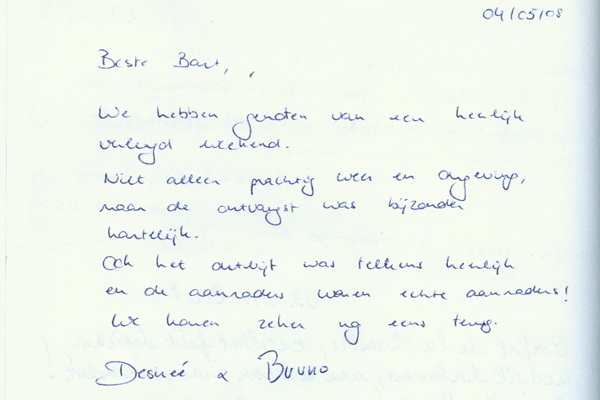 04/05/08
Beste Bart,
We hebben genoten van een heerlijk
verlengd weekend.
Niet alleen prachtig weer en omgeving,
maar de ontvangst was bijzonder
hartelijk.
Ook het ontbijt was telkens heerlijk
en de aanraders waren echte aanraders!
We komen zeker nog eens terug.
Desireé & Bruno